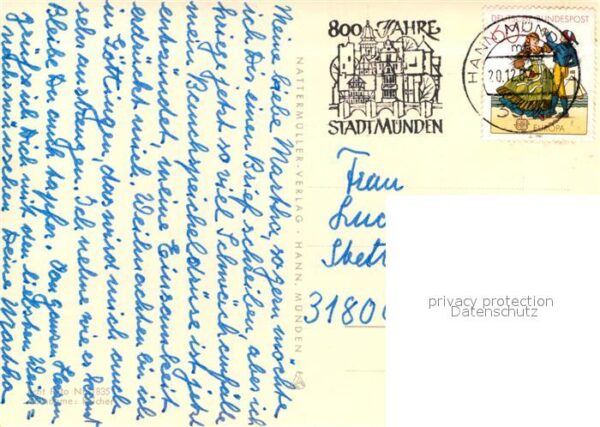 Meine liebe Martha, so gern möchte
ich Dir einen Brief schreiben, aber ich
kriege jetzt so viel Schmerzanfälle
mein Bauchspeicheldrüse ist jetzt
entzündet, meine Einsamkeit
erdrückt mich. Weihnachten bin ich
in Göttingen, das wird mich auch
sehr anstrengen. Ich nehme wie es kommt
Bleibe Du auch tapfer. Von ganzem Herzen
grüße ich Dich mit den liebsten Weih-
nachtswünschen Deine Martha
NATTERMÜLLER-VERLAG · HANN. MÜNDEN
800 JAHRE
STADT MÜNDEN
HANN MÜNDEN
20.12.
DEUTSCHE BUNDESPOST
60
EUROPA
Frau
Luc
3180
privacy protection
Datenschutz